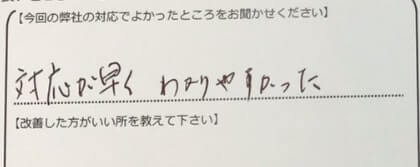 【今回の弊社の対応でよかったところをお聞かせください】
対応が早く わかりやすかった
【改善した方がいい所を教えて下さい】